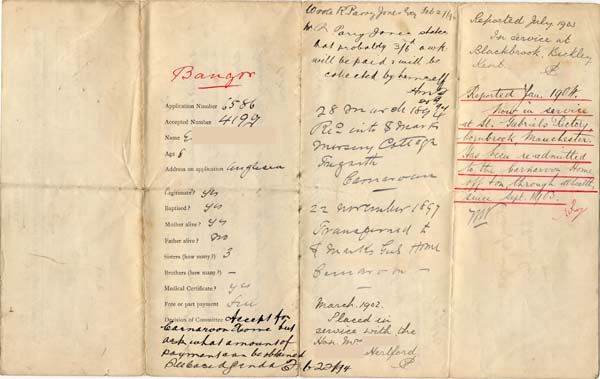 Bangor
Application Number 4586
Accepted Number 4199
Name E
Age 6
Address on application Anglesea
Legitimate? yes
Baptised? yes
Mother alive? yes
Father alive? No
Sisters (how many?) 3
Brothers (how many?) –
Medical Certificate? yes
Free or part payment
Decision of Committee Accept for
Carnarvon Home but
ask what amount of
payment can be obtained
Wrote R Parry Jones Esq Feb 2
Mr R Parry Jones states
that probably 3/6 a wk
will be paid & will be
collected by himself
28 March 1894
Recd into S Marks
Nursery Cottage
Carnarvon
22 November 1897
Transferred to
S Marks Girls Home
Carnarvon –
March. 1902.
Placed in
service with the
Hon. Mrs
Hertford
Reported July 1903
In service at
Blackbrook, Bickley,
Kent.
Reported Jan. 1904.
Now in service
at St. Gabriels Rectory,
Manchester.
Has been re-admitted
to the Carnarvon Home
off & on through ill health,
since Sept. 1903.